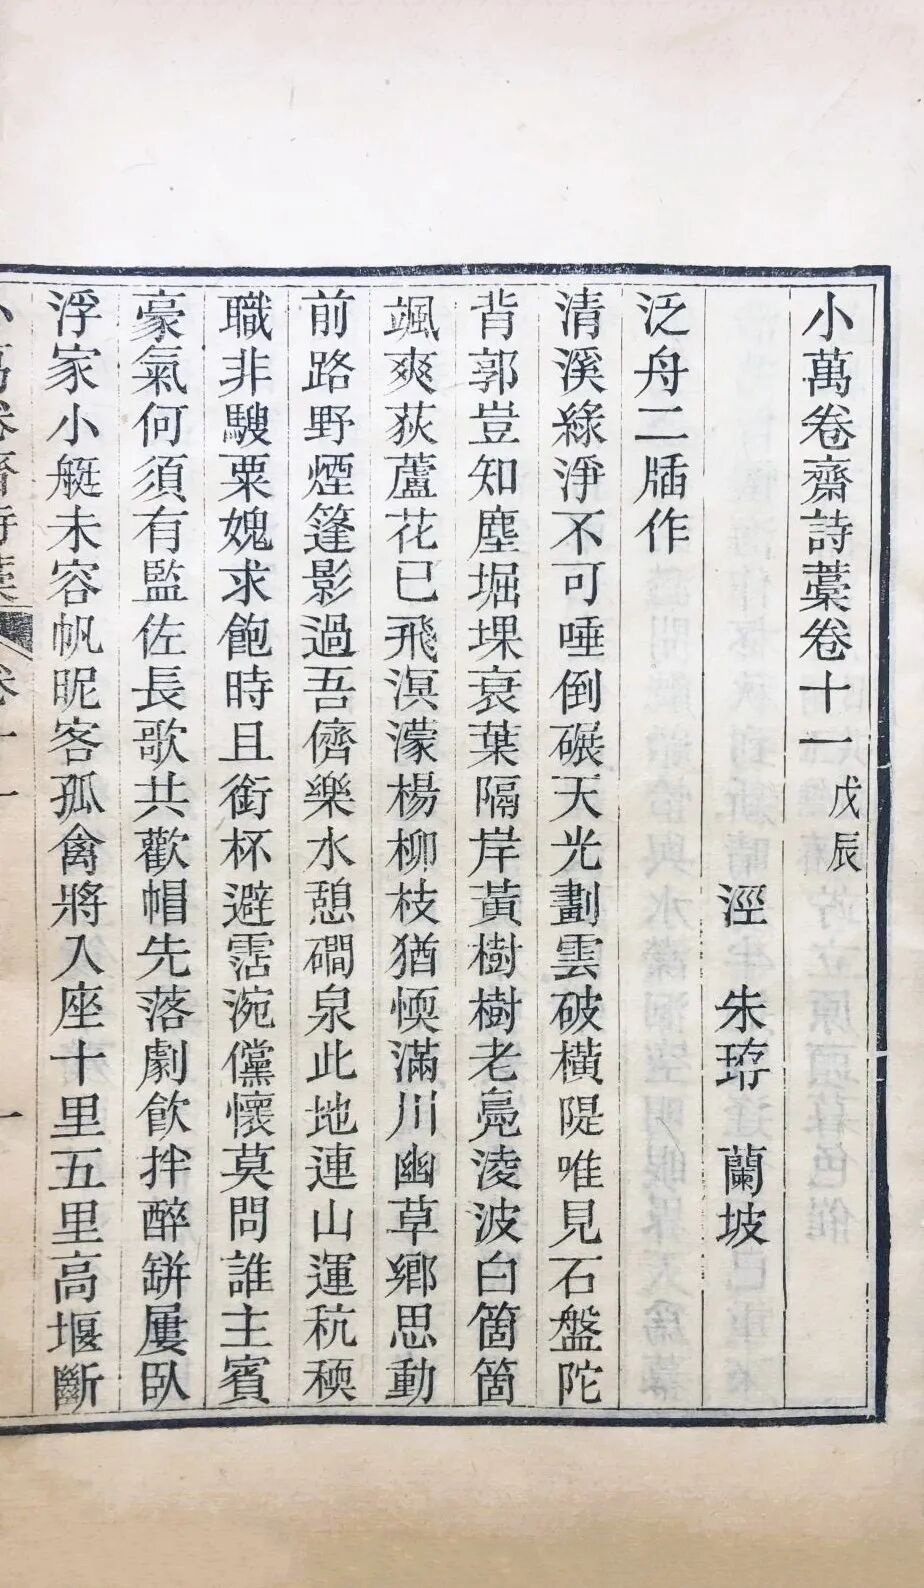 小萬卷齋詩藁卷十一 戊辰
涇 朱珔 蘭坡
泛舟二牐作
清溪綠淨不可唾倒碾天光劃雲破橫隄唯見石盤陀
背郭豈知塵堀堁衰葉隔岸黃樹樹老鳧淩波白箇箇
颯爽荻蘆花已飛溟濛楊柳枝猶愞滿川幽草鄉思動
前路野煙篷影過吾儕樂水憩磵泉此地連山運秔稬
職非騪粟媿求飽時且銜杯避霑涴儻懷莫問誰主賓
豪氣何須有監佐長歌共歡帽先落劇飲拌醉缾屢臥
浮家小艇未容帆昵客孤禽將入座十里五里高堰斷
小萬卷齋詩藁 卷十一 一